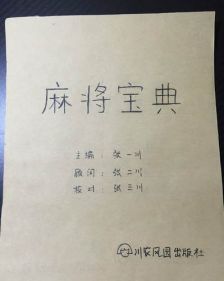 麻将宝典
主编：张一川
顾问：张二川
校对：张三川
川家凤园出版社